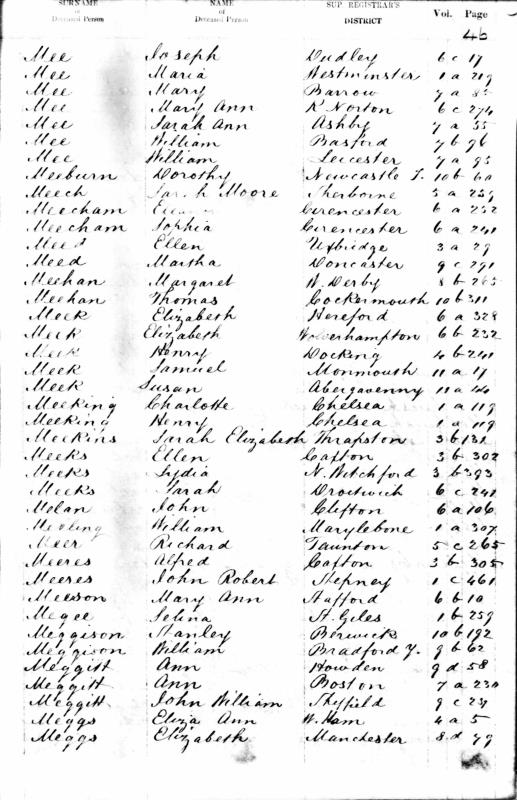 SURNAME OF Deceased Person NAME OF Deceased Person SUP. REGISTRAR'S DISTRICT Vol. Page
46
Mee Joseph Dudley 6 c 17
Mee Maria Westminster 1 a 219
Mee Mary Barrow 7 a 85
Mee Mary Ann K Norton 6 c 274
Mee Sarah Ann Ashby 7 a 55
Mee William Basford 7 b 96
Mee William Leicester 7 a 95
Meeburn Dorothy Newcastle T. 10 b 60
Meech Sarah Moore Sherborne 5 a 259
Meecham Cirencester 6 a 252
Meecham Sophia Cirencester 6 a 241
Meed Ellen Uxbridge 3 a 29
Meed Martha Doncaster 9 c 291
Meehan Margaret W. Derby 8 b 265
Meehan Thomas Cockermouth 10 b 311
Meek Elizabeth Hereford 6 a 328
Meek Elizabeth Wolverhampton 6 b 232
Meek Henry Docking 4 b 241
Meek Samuel Monmouth 11 a 17
Meek Susan Abergavenny 11 a 44
Meeking Charlotte Chelsea 1 a 119
Meeking Henry Chelsea 1 a 119
Meekins Sarah Elizabeth Thrapston 3 b 131
Meeks Ellen Caxton 3 b 302
Meeks Lydia N. Witchford 3 b 393
Meeks Sarah Droitwich 6 c 241
Melan John Clifton 6 a 106
William Marylebone 1 a 307
Meer Richard Taunton 5 c 265
Meeres Alfred Caxton 3 b 305
Meeres John Robert Stepney 1 c 461
Meeson Mary Ann Stafford 6 b 10
Megee Selina St. Giles 1 b 259
Meggison Stanley Berwick 10 b 192
Meggison William Bradford Y. 9 b 62
Meggitt Ann Howden 9 d 58
Meggitt Ann Boston 7 a 230
Meggitt John William Sheffield 9 c 231
Meggs Eliza Ann W. Ham 4 a 5
Meggs Elizabeth Manchester 8 d 79